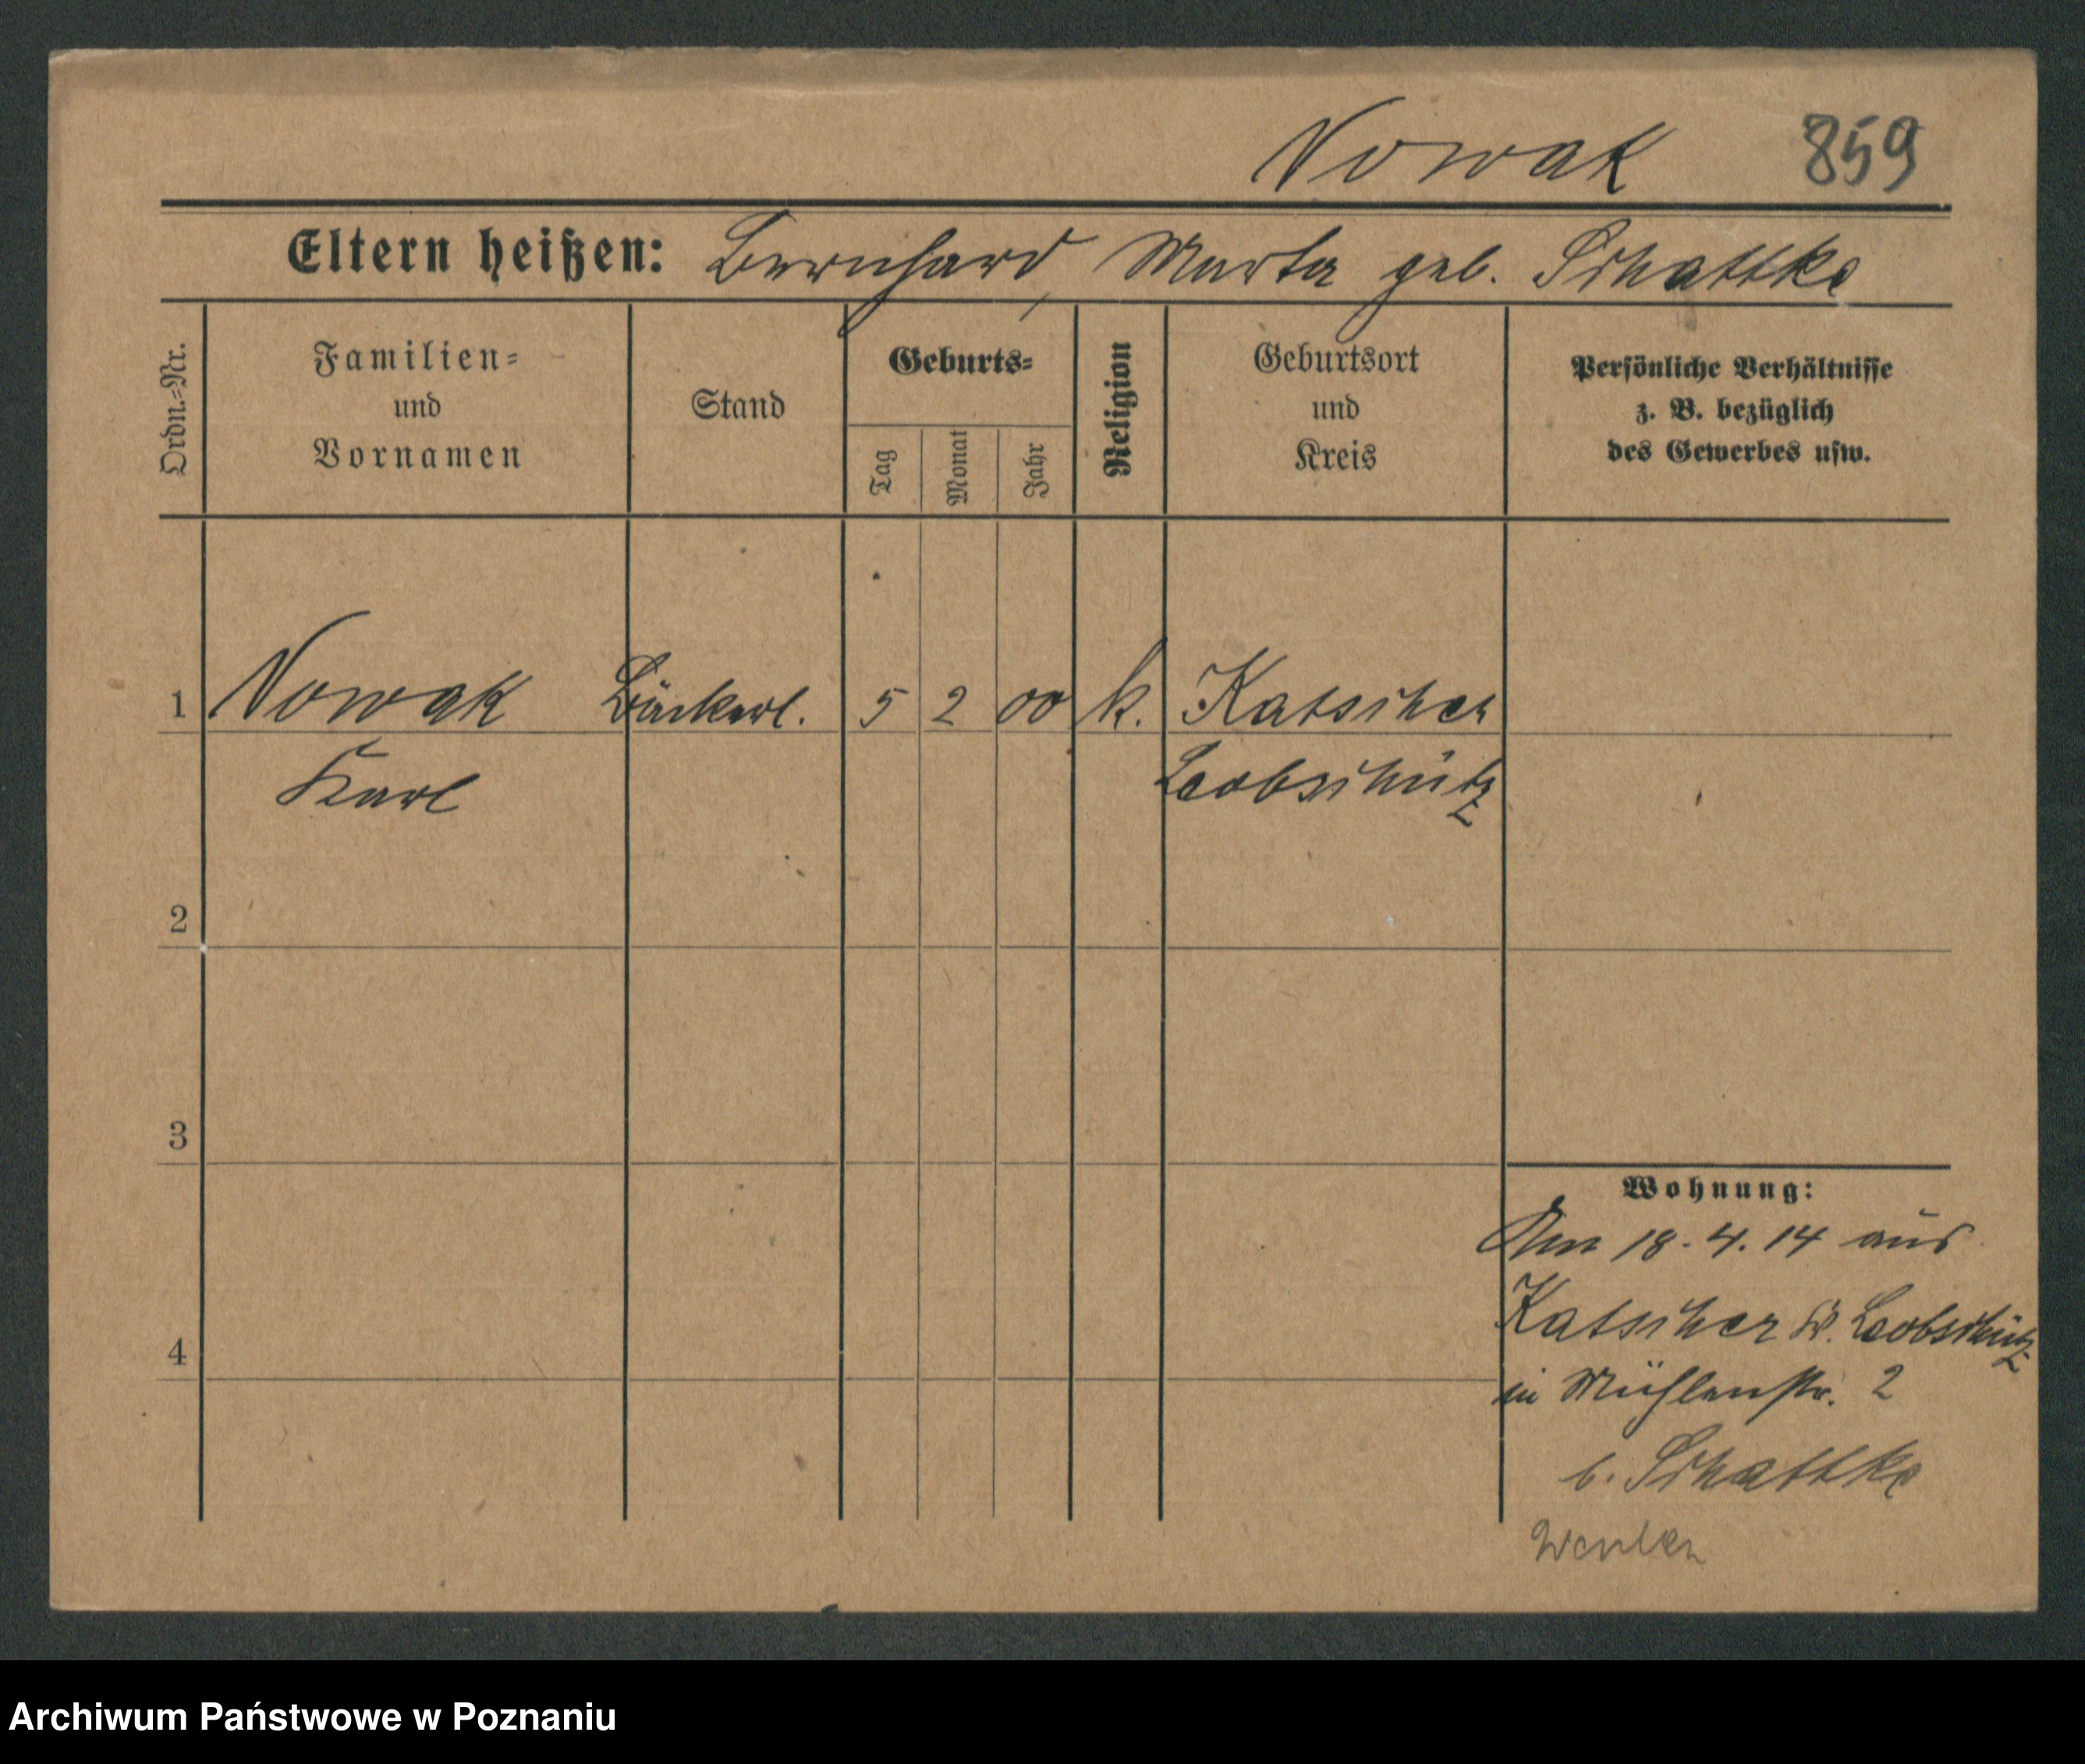 Nowak 859
Eltern heißen: Bernhard, Marta geb. Schattke
Ordn.=Nr.
Familien=
und
Vornamen
Stand
Geburts=
Tag
Monat
Jahr
Religion
Geburtsort
und
Kreis
Persönliche Verhältnisse
z. B. bezüglich
des Gewerbes usw.
1 Nowak Bäckerl. 5 2 00 k. Katscher
Karl Leobschütz
2
3
Wohnung:
Am 18.4.14 aus
Katscher Kr. Leobschütz
4
in Mühlenstr. 2
b. Schattke
Archiwum Państwowe w Poznaniu